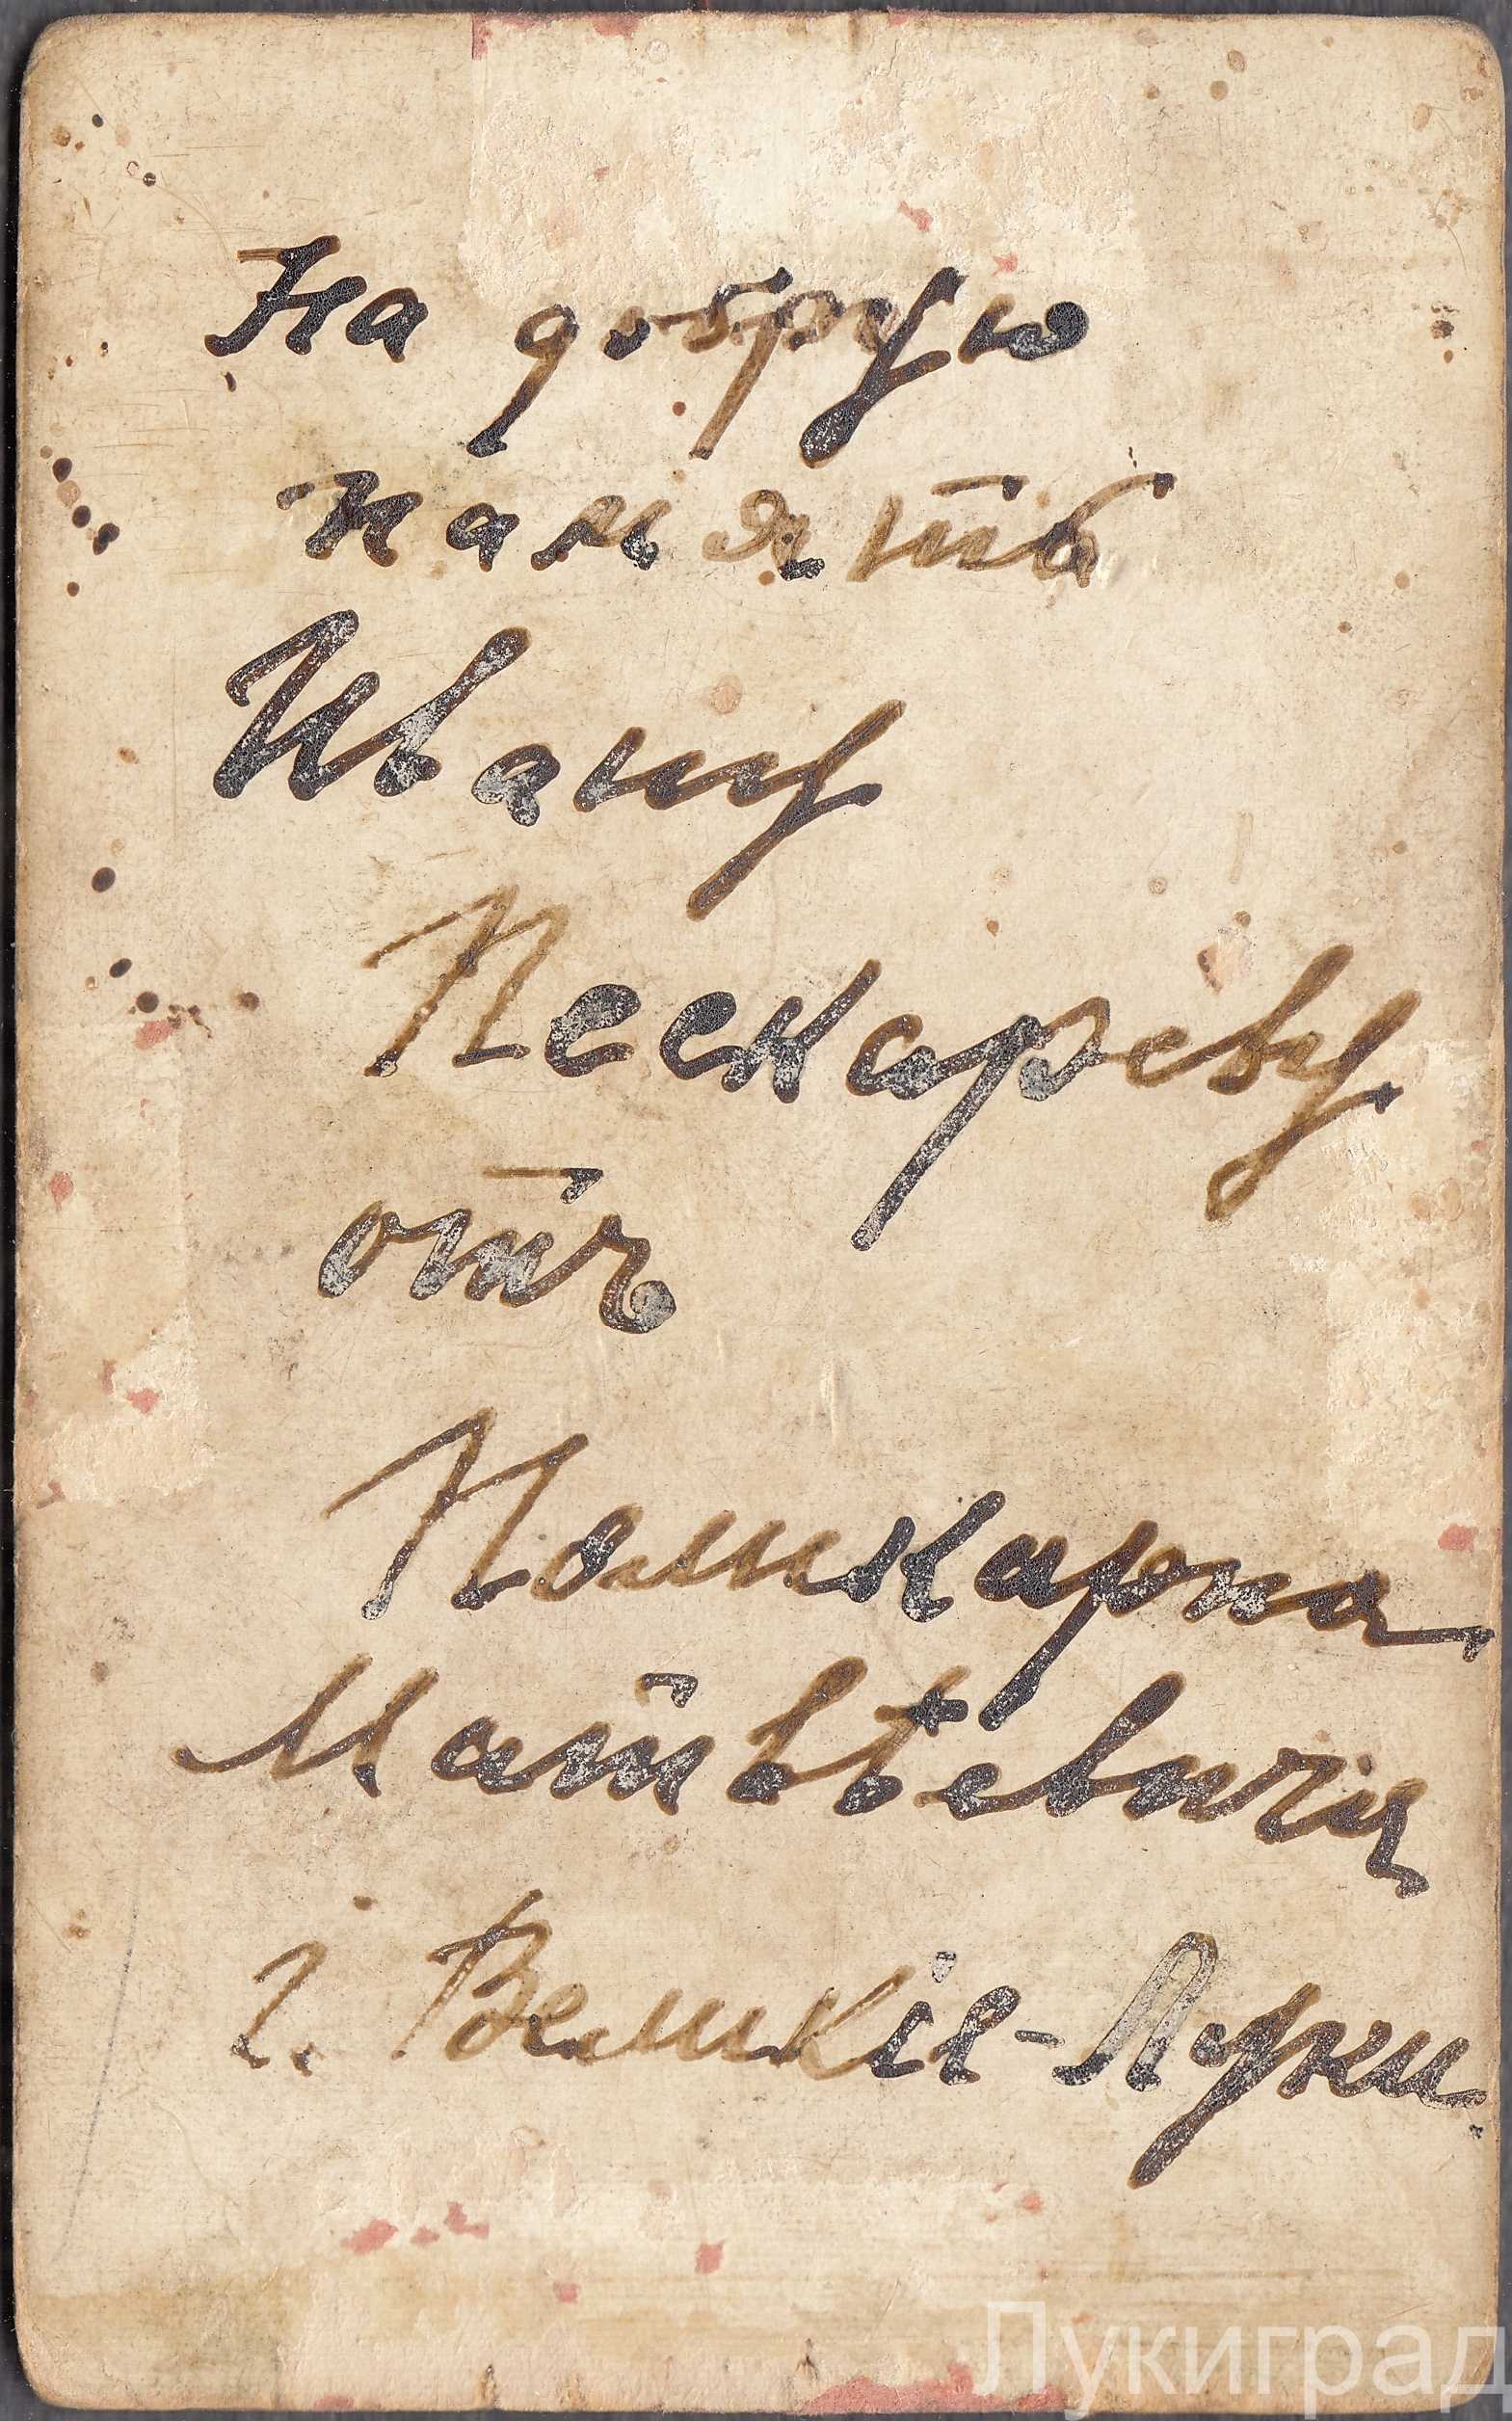 На добрую
память
Ивану
Пескареву
отъ
Поликарпа
Матвѣевича
г. Великіе-Луки.
Лукиград